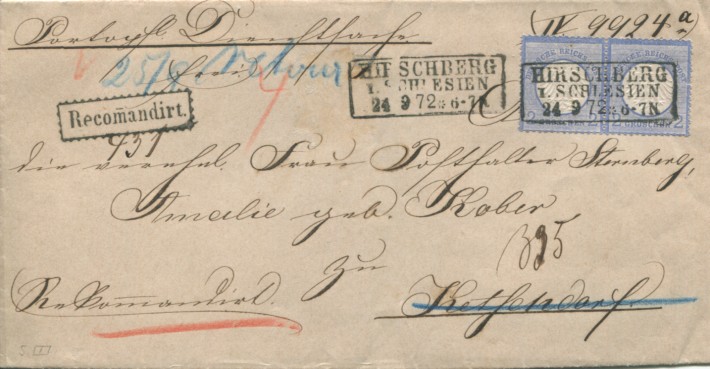 Portopfl. Dienstsache
(IV. 9924 a
25/9 Retour
frei
HIRSCHBERG
I. SCHLESIEN
24 9 72 6-7N
HIRSCHBERG
I. SCHLESIEN
24 9 72 6-7N
2 GROSCHEN 2
Recomandirt.
931
An
die verehel. Frau Posthalter Sternberg,
Amalie geb. Kober
395
zu
Rekommandirt.
Ketschendorf.